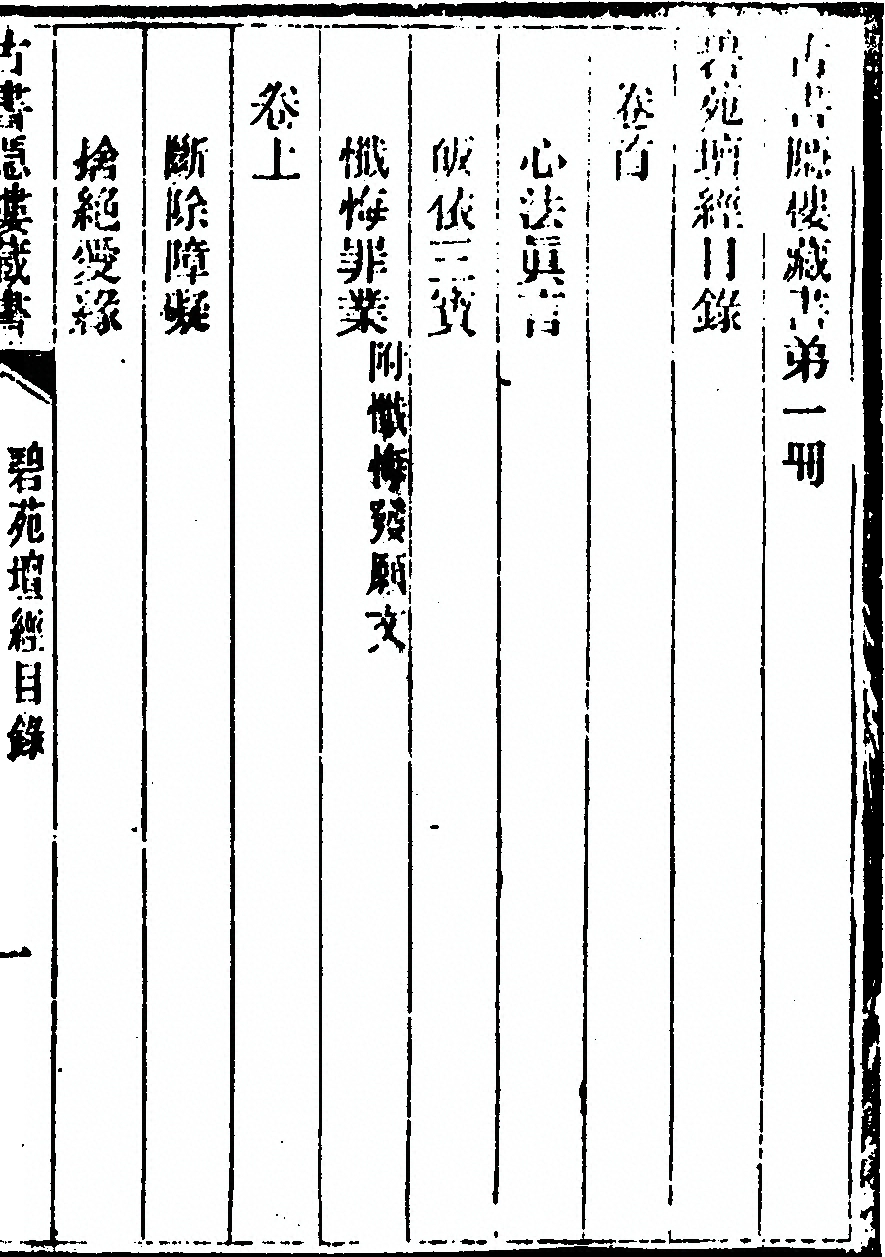 古書隱樓藏書弟一冊
碧苑壇經目錄
卷首
心法眞言
皈依三寶
懺悔罪業附懺悔發願文
卷上
斷除障礙
捨絕愛緣
古書隱樓藏書
碧苑壇經目錄
一